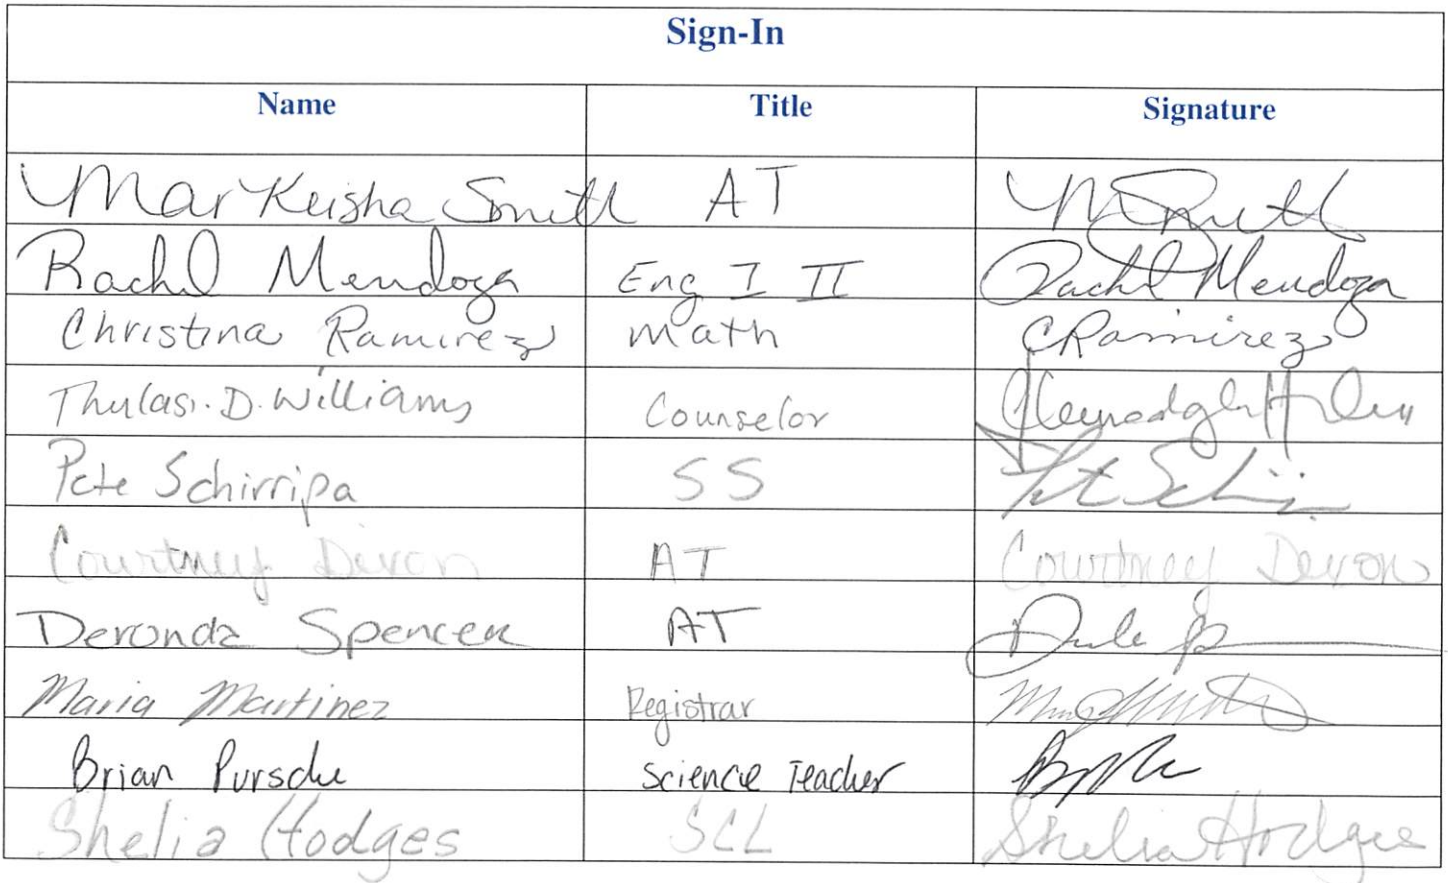 Sign-In
Name Title Signature
Markeisha Smith AT MSmith
Rachel Mendoza Eng I II Rachel Mendoza
Christina Ramirez Math CRamirez
Thulasi. D. Williams Counselor
Pete Schirripa SS
Courtney Devon AT Courtney Devon
Deronda Spencer AT
Maria Martinez Registrar
Brian Pursche Science Teacher
Shelia Hodges SCL Shelia Hodges